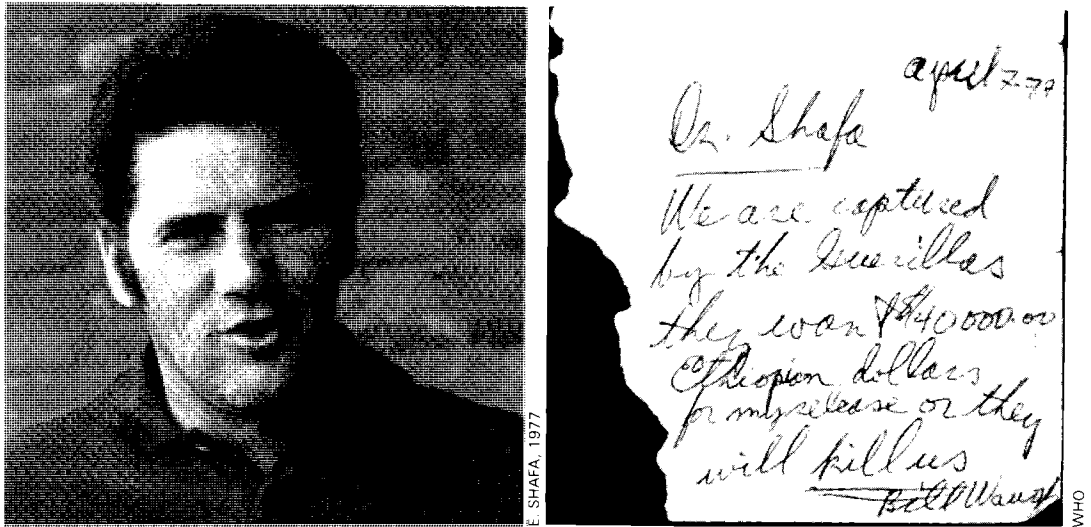 E. SHAFA, 1977
april 7-77
Dr. Shafa
We are captured
by the Guerillas
they want $40000.00
Ethiopian dollars
for my release or they
will kill us
Bill Waugh
WHO